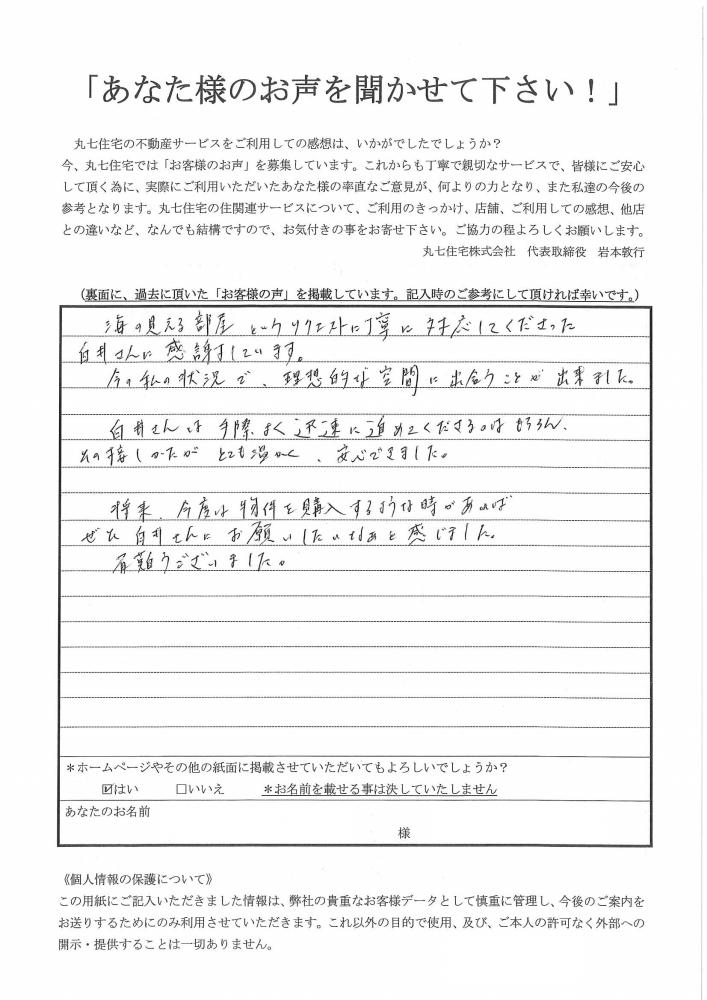 「あなた様のお声を聞かせて下さい！」
丸七住宅の不動産サービスをご利用しての感想は、いかがでしたでしょうか？
今、丸七住宅では「お客様のお声」を募集しています。これからも丁寧で親切なサービスで、皆様にご安心
して頂く為に、実際にご利用いただいたあなた様の率直なご意見が、何よりの力となり、また私達の今後の
参考となります。丸七住宅の住関連サービスについて、ご利用のきっかけ、店舗、ご利用しての感想、他店
との違いなど、なんでも結構ですので、お気付きの事をお寄せ下さい。ご協力の程よろしくお願いします。
丸七住宅株式会社　代表取締役　岩本敦行
（裏面に、過去に頂いた「お客様の声」を掲載しています。記入時のご参考にして頂ければ幸いです。）
海の見える部屋 というリクエストに丁寧に対応してくださった
白井さんに感謝しています。
今の私の状況で、理想的な空間に出会うことが出来ました。
白井さんは手際よく迅速に進めてくださるのはもちろん、
その接しかたがとても温かく、安心できました。
将来、今度は物件を購入するような時があれば
ぜひ白井さんにお願いしたいなぁと感じました。
有難うございました。
＊ホームページやその他の紙面に掲載させていただいてもよろしいでしょうか？
☑はい　□いいえ　＊お名前を載せる事は決していたしません
あなたのお名前
様
《個人情報の保護について》
この用紙にご記入いただきました情報は、弊社の貴重なお客様データとして慎重に管理し、今後のご案内を
お送りするためにのみ利用させていただきます。これ以外の目的で使用、及び、ご本人の許可なく外部への
開示・提供することは一切ありません。